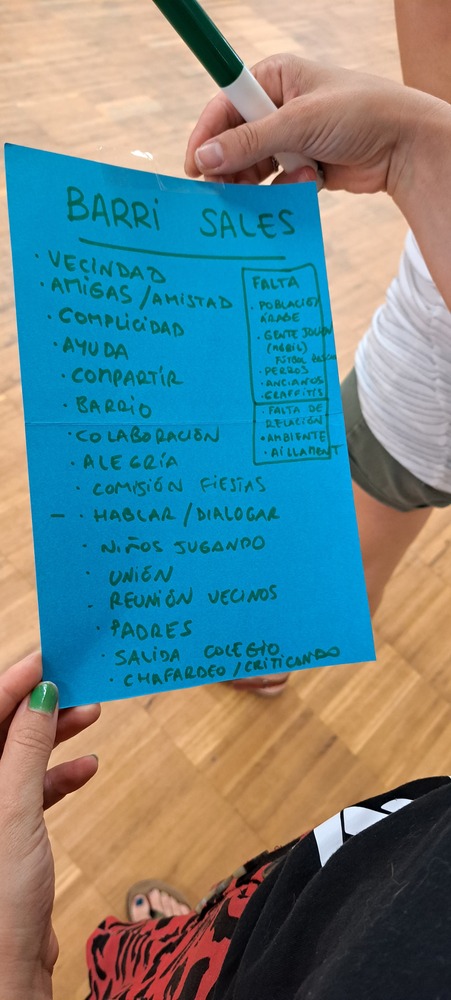 BARRI SALES
· VECINDAD
· AMIGAS / AMISTAD
· COMPLICIDAD
· AYUDA
· COMPARTIR
· BARRIO
· COLABORACIÓN
· ALEGRÍA
· COMISIÓN FIESTAS
- · HABLAR / DIALOGAR
· NIÑOS JUGANDO
· UNIÓN
· REUNIÓN VECINOS
· PADRES
· SALIDA COLEGIO
· CHAFARDEO / CRITICANDO
FALTA
· POBLACIÓN
ÁRABE
· GENTE JOVEN
FÚTBOL
· PERROS
· ANCIANOS
· GRAFFITIS
· FALTA DE
RELACIÓN
· AMBIENTE
· AÏLLAMENT